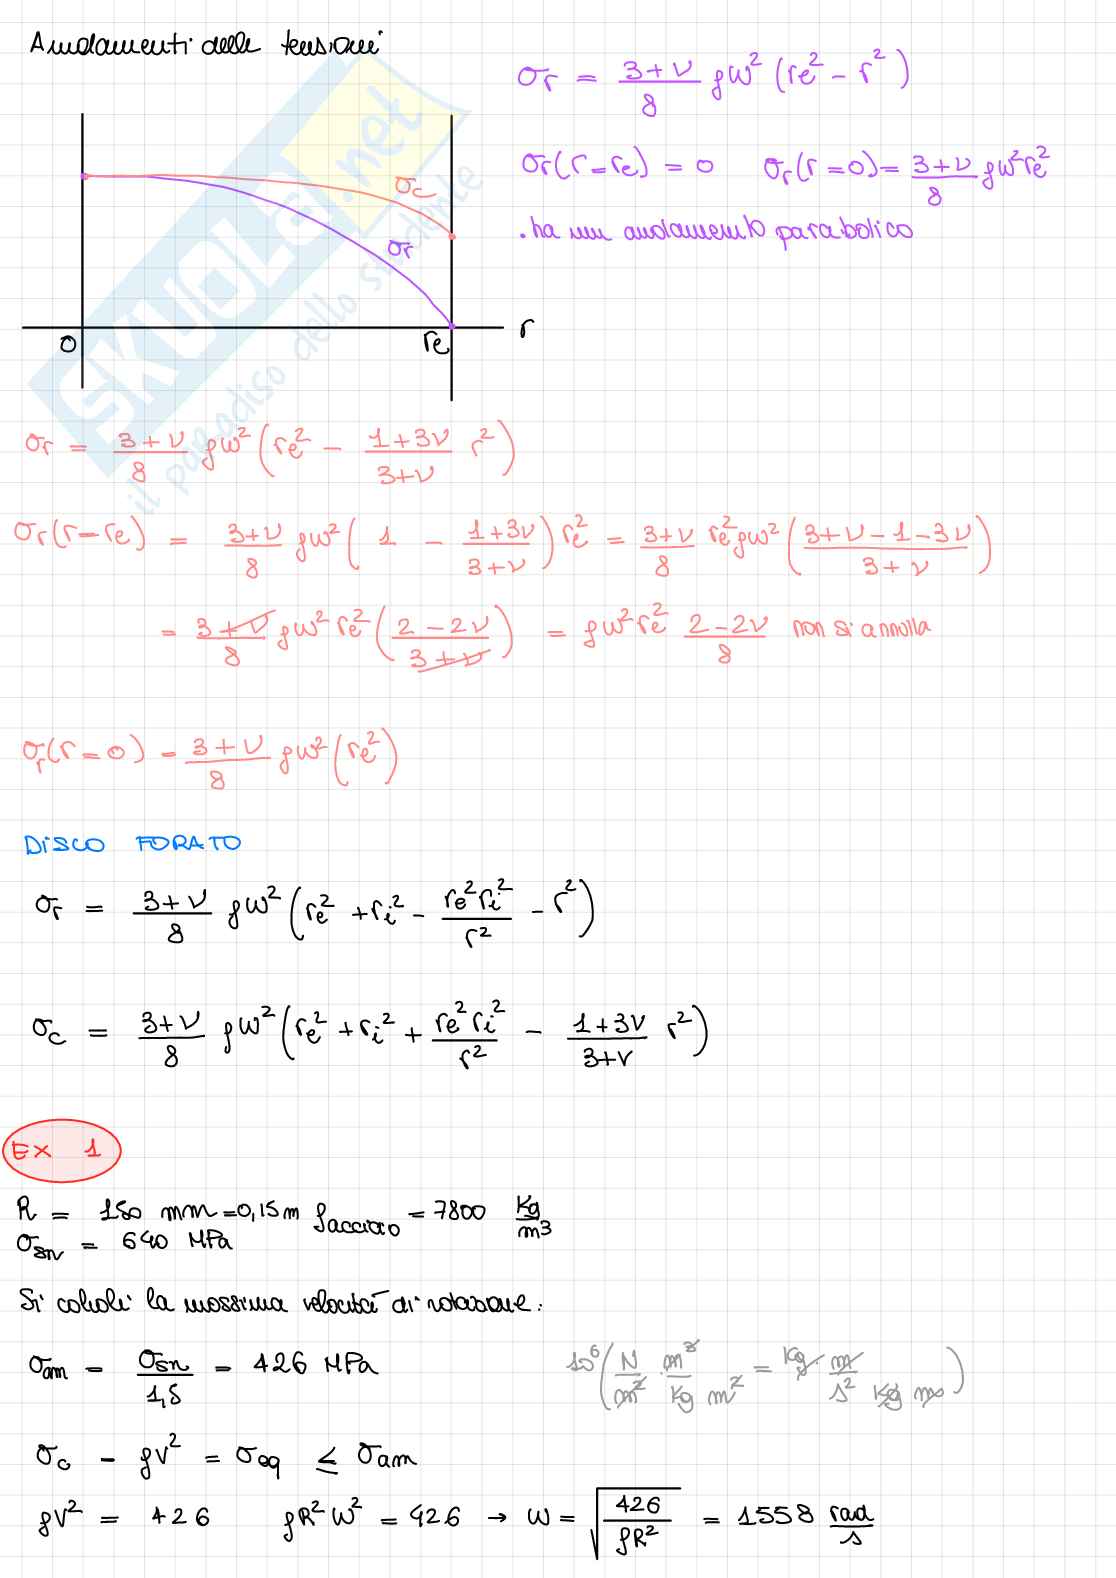 Andamenti delle tensioni
σr = (3+ν)/8 ρω² (re² − r²)
σr(r=re) = 0   σr(r=0) = (3+ν)/8 ρω²re²
. ha un andamento parabolico
σc
σr
0   re   r
σr = (3+ν)/8 ρω² (re² − (1+3ν)/(3+ν) r²)
σr(r=re) = (3+ν)/8 ρω² (1 − (1+3ν)/(3+ν)) re² = (3+ν)/8 re²ρω² ((3+ν−1−3ν)/(3+ν))
= (3+ν)/8 ρω² re² ((2−2ν)/(3+ν)) = ρω²re² (2−2ν)/8 non si annulla
σr(r=0) = (3+ν)/8 ρω² (re²)
DISCO FORATO
σr = (3+ν)/8 ρω² (re² + ri² − re²ri²/r² − r²)
σc = (3+ν)/8 ρω² (re² + ri² + re²ri²/r² − (1+3ν)/(3+ν) r²)
EX 1
R = 150 mm = 0,15 m ρacciaio = 7800 Kg/m³
σsn = 640 MPa
Si calcoli la massima velocità di rotazione.
σam = σsn/1,5 = 426 MPa   10⁶ (N/m² · m³/(Kg m²) = Kg · m/s² Kg m)
σc = ρV² = σeq ≤ σam
ρV² = 426   ρR²ω² = 426 → ω = √(426/ρR²) = 1558 rad/s
SKUOLA.net
il paradiso dello studente